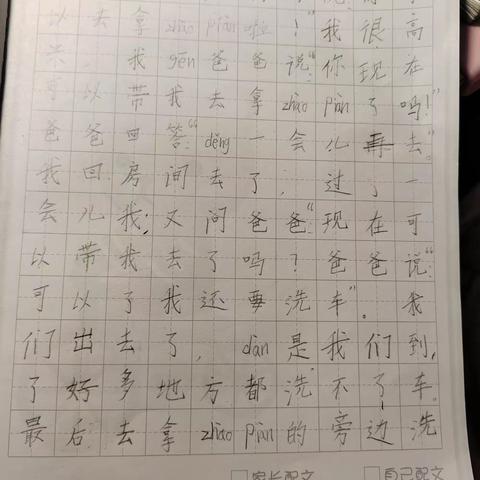 以去拿zhào piàn啦！"我很高
我gēn爸爸说："你现在
可以带我去拿zhào piàn了吗！"
爸爸回答："děng一会儿再去。"
我回房间去了，过了一
会儿我，又问爸爸："现在可
以带我去了吗？爸爸说："
可以了我还要洗车"。我
们出去了，dàn是我们到，
了好多地方都洗不了车。
最后去拿zhào piàn的旁边洗
家长配文 自己配文